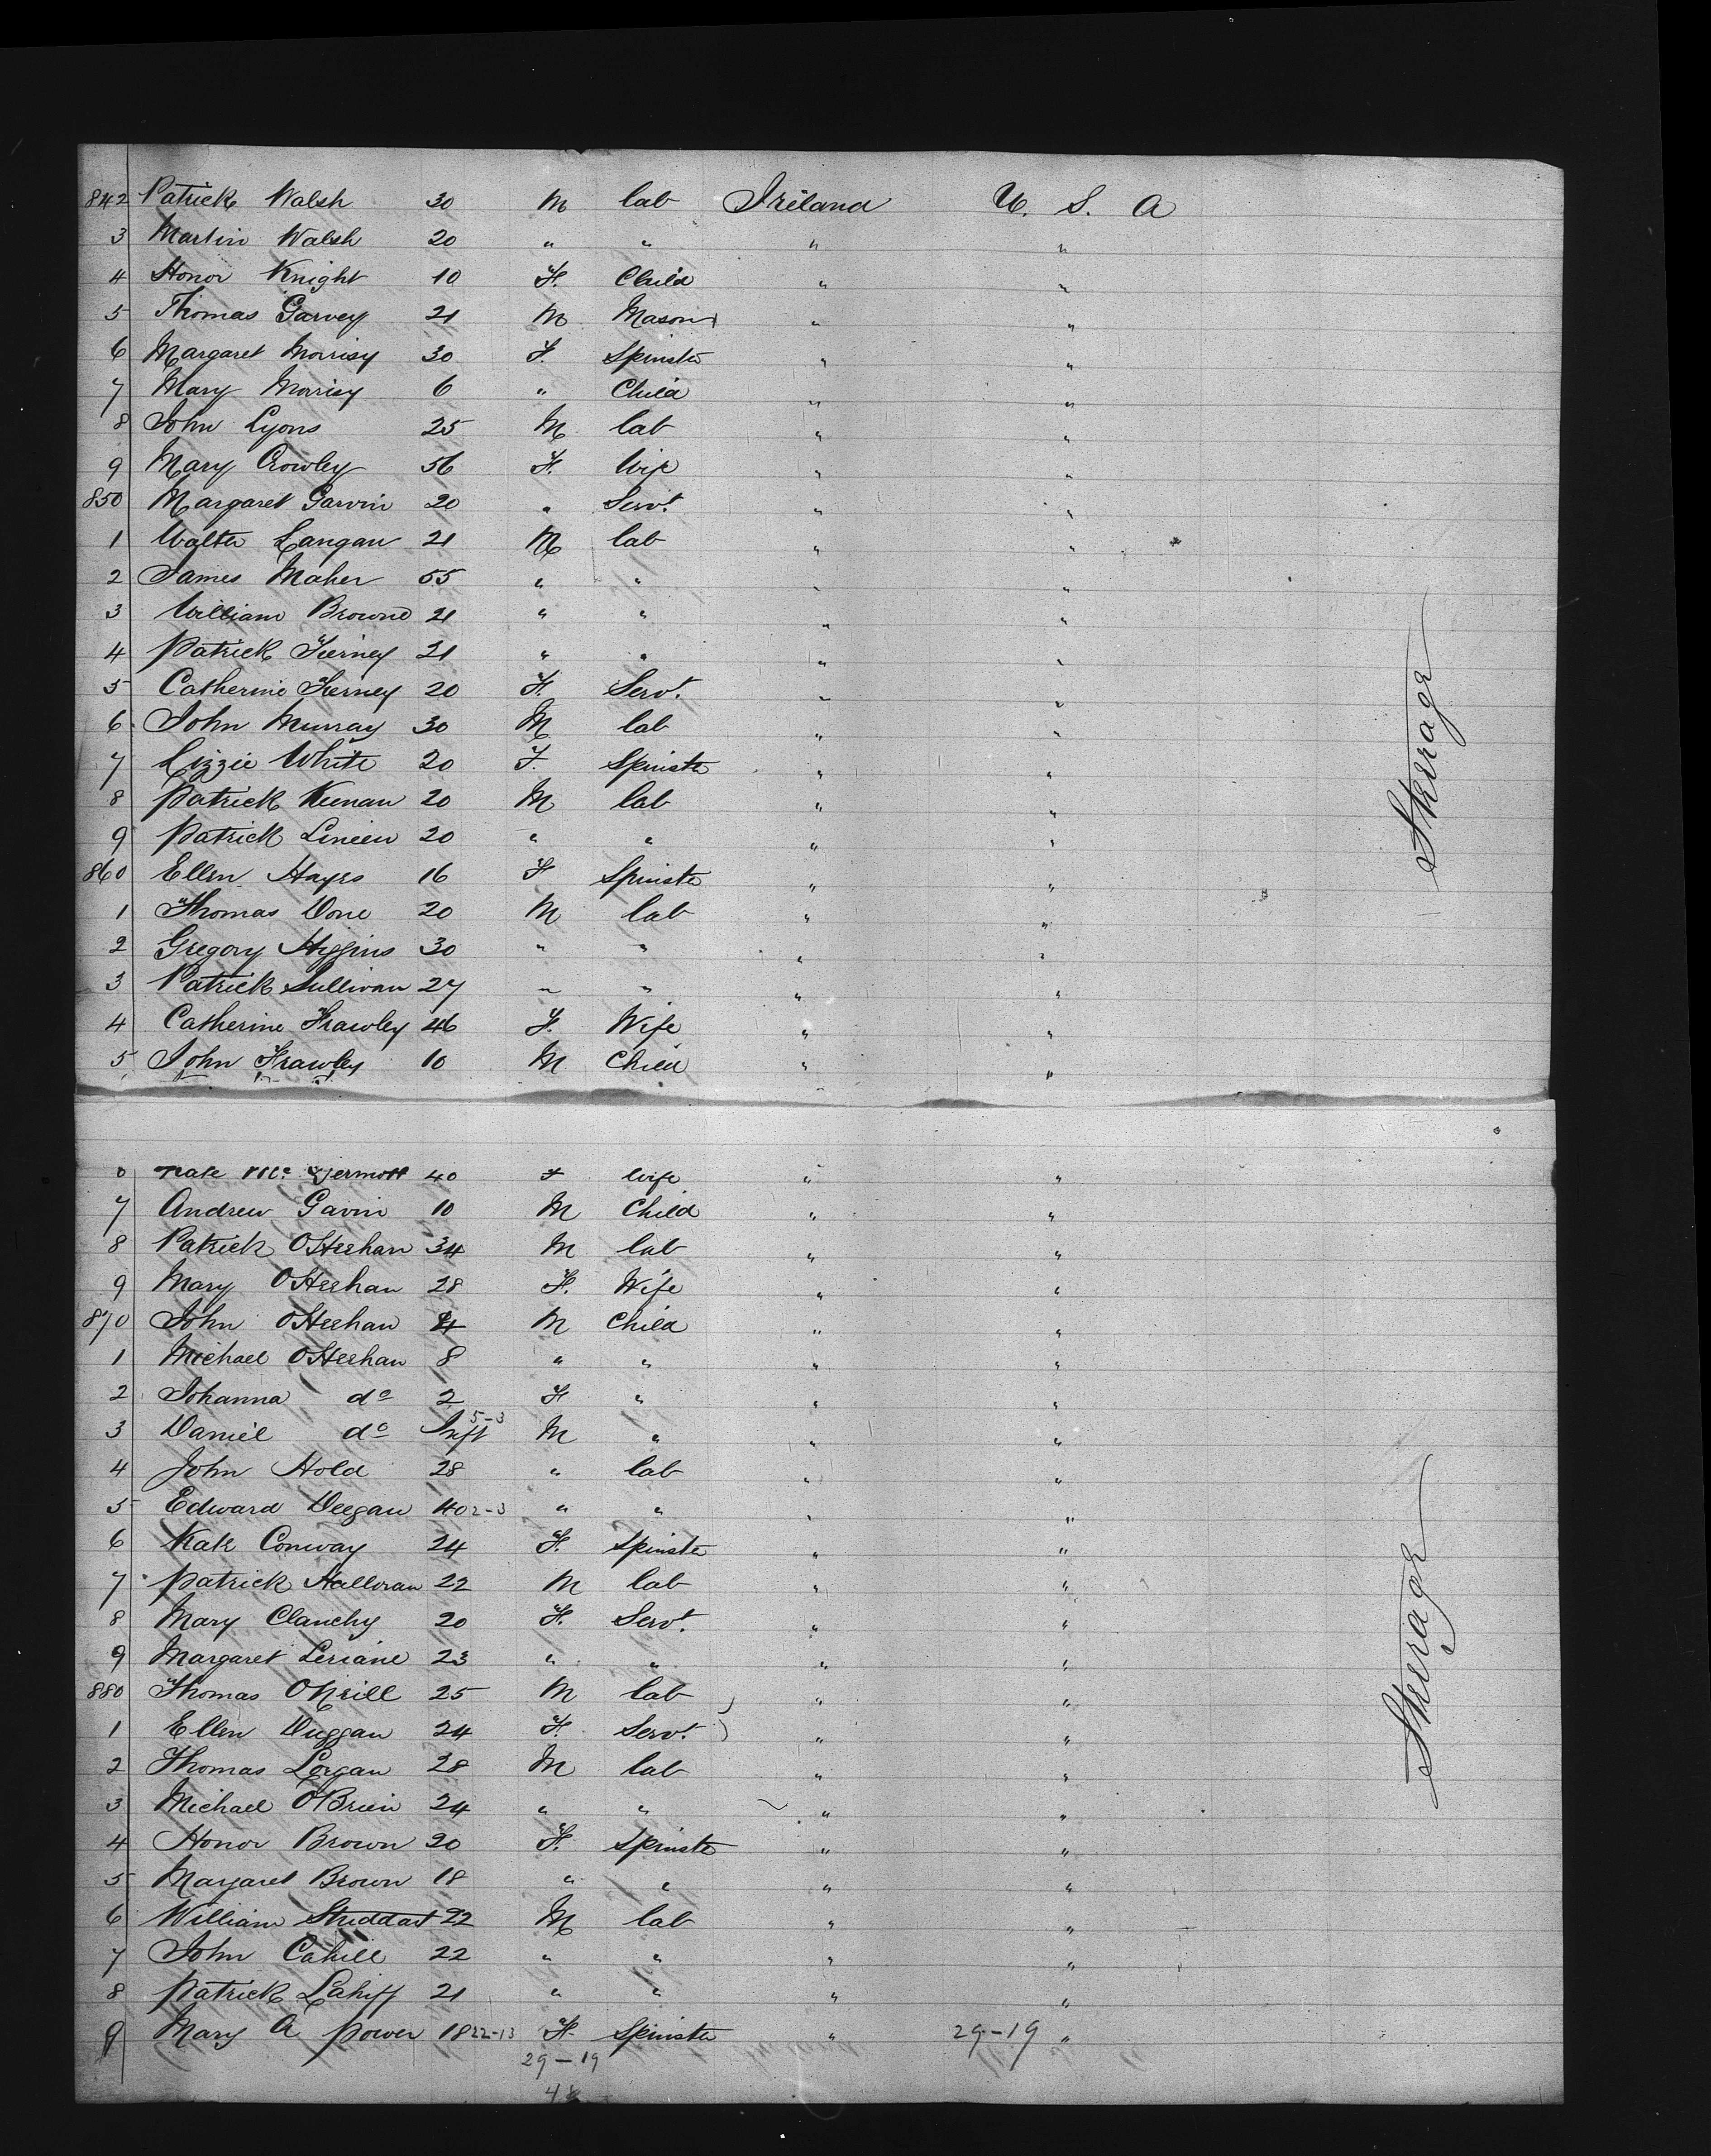 842 Patrick Walsh 30 M lab Ireland U. S. A
3 Martin Walsh 20 " " " "
4 Honor Knight 10 F. Child " "
5 Thomas Garvey 21 M Mason " "
6 Margaret Morrisy 30 F. Spinster " "
7 Mary Morrisy 6 " Child " "
8 John Lyons 25 M lab " "
9 Mary Crowley 56 F. Wife " "
850 Margaret Garvin 20 " Servt " "
1 Walter Langan 21 M lab " "
2 James Maher 55 " " " "
3 William Browne 21 " " " "
4 Patrick Tierney 21 " " " "
5 Catherine Tierney 20 F. Servt. " "
6 John Murray 30 M lab " "
7 Lizzie White 20 F. Spinster " "
8 Patrick Keenan 20 M lab " "
9 Patrick 20 " " " "
860 Ellen Hayes 16 F Spinster " "
1 Thomas Done 20 M lab " "
2 Gregory Higgins 30 " " " "
3 Patrick Sullivan 27 " " " "
4 Catherine Frawley 46 F. Wife " "
5 John Frawley 10 M Child " "
Steerage
Kate Mc Dermott 40 F Wife " "
7 Andrew Gavin 10 M Child " "
8 Patrick OSheehan 34 M lab " "
9 Mary OSheehan 28 F. Wife " "
870 John OSheehan 4 M Child " "
1 Michael OSheehan 8 " " " "
2 Johanna do 2 F " " "
3 Daniel do Inft 5-3 M " " "
4 John Hold 28 " lab " "
5 Edward Deegan 40 2-3 " " " "
6 Kate Conway 24 F. Spinster " "
7 Patrick Halloran 22 M lab " "
8 Mary Clanchy 20 F. Servt. " "
9 Margaret Leriane 23 " " " "
880 Thomas ONeill 25 M lab " "
1 Ellen Duggan 24 F. Servt. " "
2 Thomas Lorgan 28 M lab " "
3 Michael OBrien 24 " " " "
4 Honor Brown 20 F. Spinster " "
5 Margaret Brown 18 " " " "
6 William Studdart 22 M lab " "
7 John Cahill 22 " " " "
8 Patrick Lahiff 21 " " " "
9 Mary A Power 18 22-13 F. Spinster " 29-19 "
29-19
48
Steerage